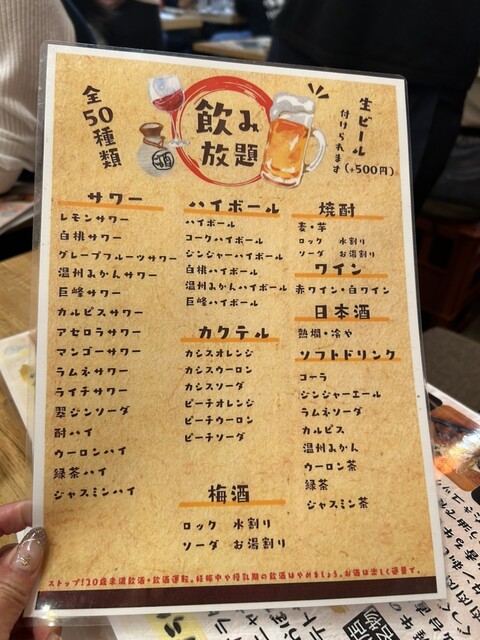 全50種類
飲み
放題
生ビール
付けられます
(+500円)
サワー
レモンサワー
白桃サワー
グレープフルーツサワー
温州みかんサワー
巨峰サワー
カルピスサワー
アセロラサワー
マンゴーサワー
ラムネサワー
ライチサワー
翠ジンソーダ
酎ハイ
ウーロンハイ
緑茶ハイ
ジャスミンハイ
ハイボール
ハイボール
コークハイボール
ジンジャーハイボール
白桃ハイボール
温州みかんハイボール
巨峰ハイボール
カクテル
カシスオレンジ
カシスウーロン
カシスソーダ
ピーチオレンジ
ピーチウーロン
ピーチソーダ
梅酒
ロック 水割り
ソーダ お湯割り
焼酎
麦・芋
ロック 水割り
ソーダ お湯割り
ワイン
赤ワイン・白ワイン
日本酒
熱燗・冷や
ソフトドリンク
コーラ
ジンジャーエール
ラムネソーダ
カルピス
温州みかん
ウーロン茶
緑茶
ジャスミン茶
ストップ!20歳未満飲酒・飲酒運転。妊娠中や授乳期の飲酒はやめましょう。お酒は楽しく適量で。